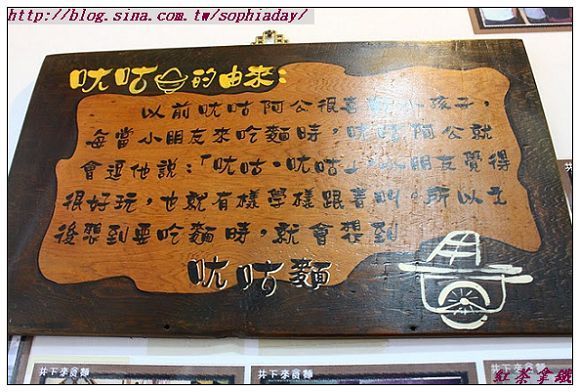 http://blog.sina.com.tw/sophiaday/
呔咕的由來：
以前呔咕阿公很喜 小孩子，
每當小朋友來吃麵時，呔咕阿公就
會逗他說：「呔咕。呔咕」，小朋友覺得
很好玩，也就有樣學樣跟著叫。所以之
後想到要吃麵時，就會想到
呔咕麵
井下來貪麵
井下來貪麵
井下來貪麵
紅茶拿鐵